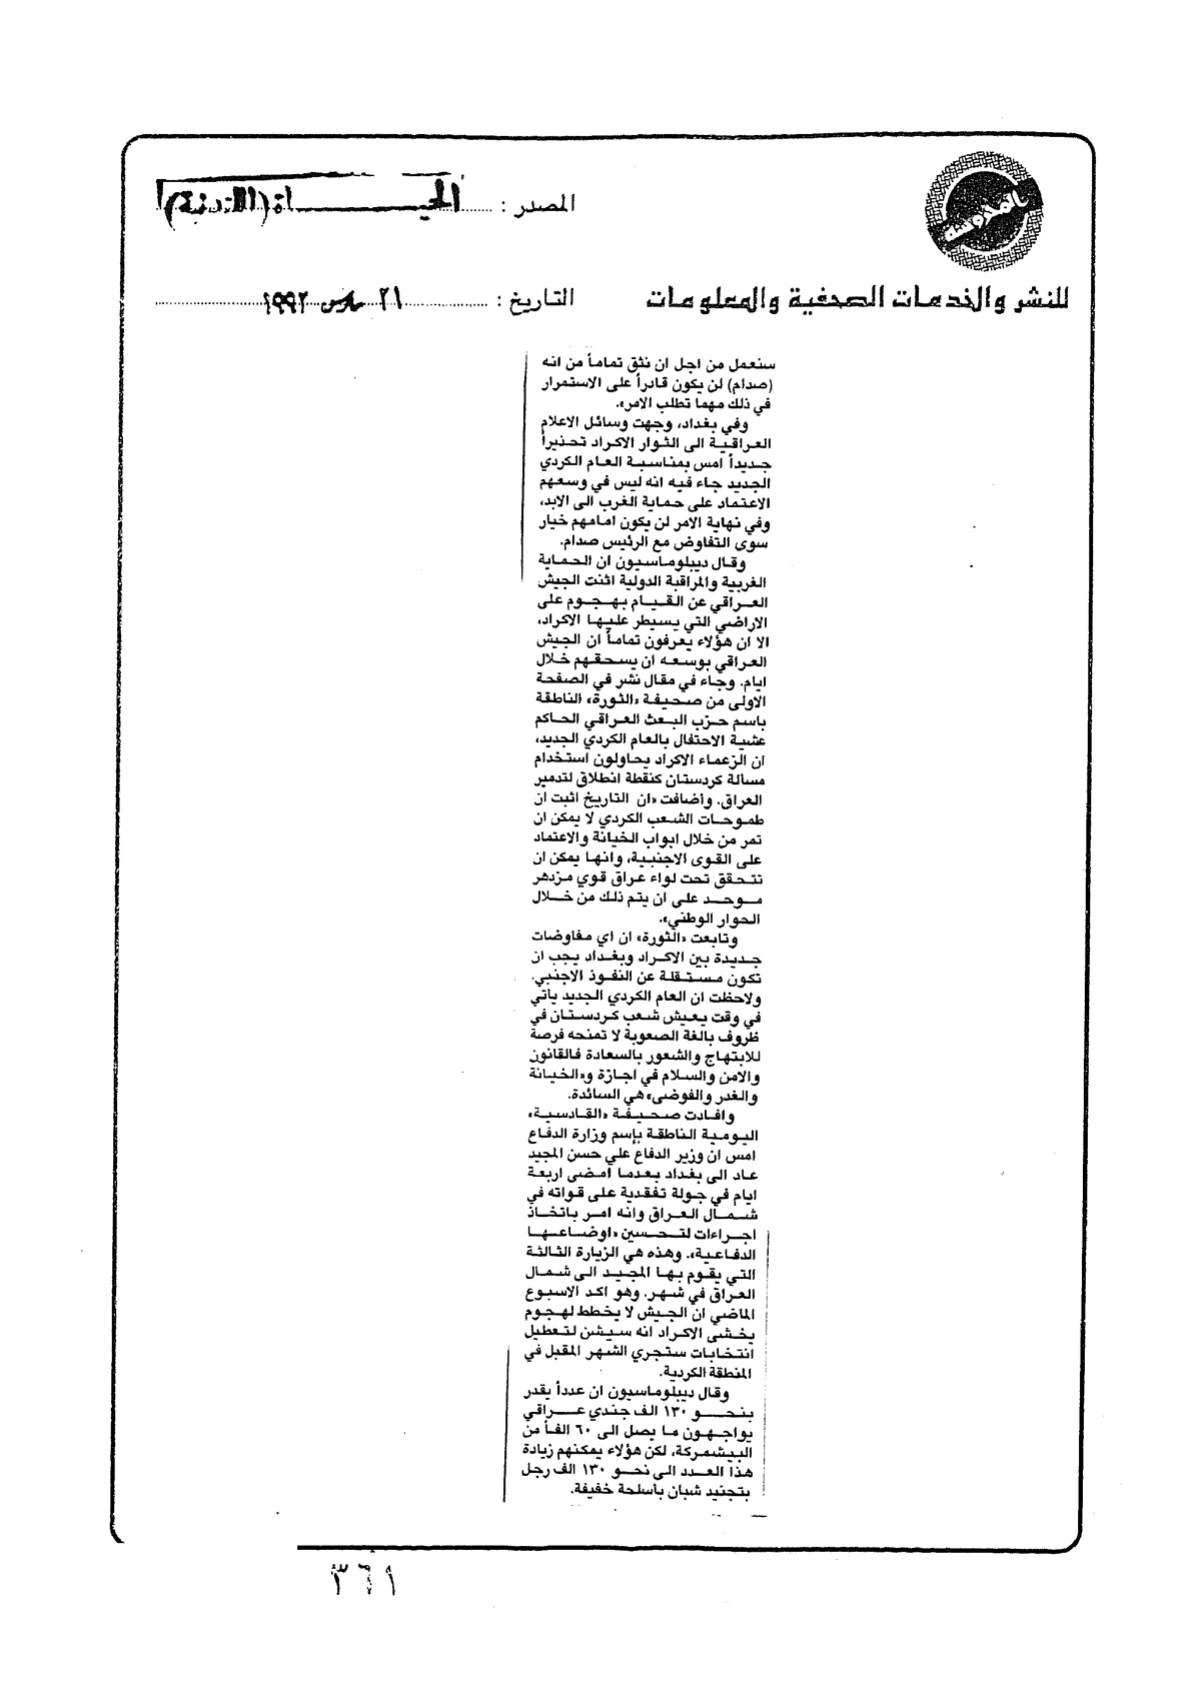 المصدر : الحيـــاة (اللندنية)
للنشر والخدمات الصحفية والمعلومات
التاريخ : ٢١ مارس ١٩٩٢
سنعمل من اجل ان نثق تماماً من انه
(صدام) لن يكون قادراً على الاستمرار
في ذلك مهما تطلب الامر».
وفي بغداد، وجهت وسائل الاعلام
العراقية الى الثوار الاكراد تحذيراً
جديداً امس بمناسبة العام الكردي
الجديد جاء فيه انه ليس في وسعهم
الاعتماد على حماية الغرب الى الابد،
وفي نهاية الامر لن يكون امامهم خيار
سوى التفاوض مع الرئيس صدام.
وقال ديبلوماسيون ان الحماية
الغربية والمراقبة الدولية اثنت الجيش
العراقي عن القيام بهجوم على
الاراضي التي يسيطر عليها الاكراد،
الا ان هؤلاء يعرفون تماماً ان الجيش
العراقي بوسعه ان يسحقهم خلال
ايام. وجاء في مقال نشر في الصفحة
الاولى من صحيفة «الثورة» الناطقة
باسم حزب البعث العراقي الحاكم
عشية الاحتفال بالعام الكردي الجديد،
ان الزعماء الاكراد يحاولون استخدام
مسألة كردستان كنقطة انطلاق لتدمير
العراق. واضافت «ان التاريخ اثبت ان
طموحات الشعب الكردي لا يمكن ان
تمر من خلال ابواب الخيانة والاعتماد
على القوى الاجنبية، وانها يمكن ان
تتحقق تحت لواء عراق قوي مزدهر
موحد على ان يتم ذلك من خلال
الحوار الوطني».
وتابعت «الثورة» ان اي مفاوضات
جديدة بين الاكراد وبغداد يجب ان
تكون مستقلة عن النفوذ الاجنبي.
ولاحظت ان العام الكردي الجديد يأتي
في وقت يعيش شعب كردستان في
ظروف بالغة الصعوبة لا تمنحه فرصة
للابتهاج والشعور بالسعادة فالقانون
والامن والسلام في اجازة و«الخيانة
والغدر والفوضى» هي السائدة.
وافادت صحيفة «القادسية»
اليومية الناطقة بإسم وزارة الدفاع
امس ان وزير الدفاع علي حسن المجيد
عاد الى بغداد بعدما امضى اربعة
ايام في جولة تفقدية على قواته في
شمال العراق وانه امر باتخاذ
اجراءات لتحسين «اوضاعها
الدفاعية». وهذه هي الزيارة الثالثة
التي يقوم بها المجيد الى شمال
العراق في شهر. وهو اكد الاسبوع
الماضي ان الجيش لا يخطط لهجوم
يخشى الاكراد انه سيشن لتعطيل
انتخابات ستجري الشهر المقبل في
المنطقة الكردية.
وقال ديبلوماسيون ان عدداً يقدر
بنحو ١٣٠ الف جندي عراقي
يواجهون ما يصل الى ٦٠ الفاً من
البيشمركة، لكن هؤلاء يمكنهم زيادة
هذا العدد الى نحو ١٣٠ الف رجل
بتجنيد شبان بأسلحة خفيفة.
٣٦١